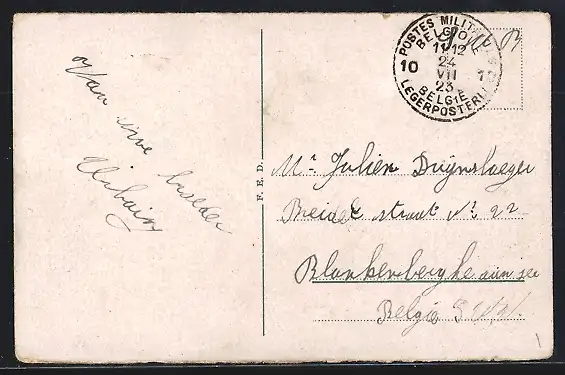 Van uwe
broeder
POSTES MILITAIRES
BELGIQUE
11-12
10 24 10
VII
23
BELGIË
LEGERPOSTERIJ
F. E. D.
Mr Julien Duijnslaeger
Breidel straat No 22
Blankenberghe aan zee
Belgie